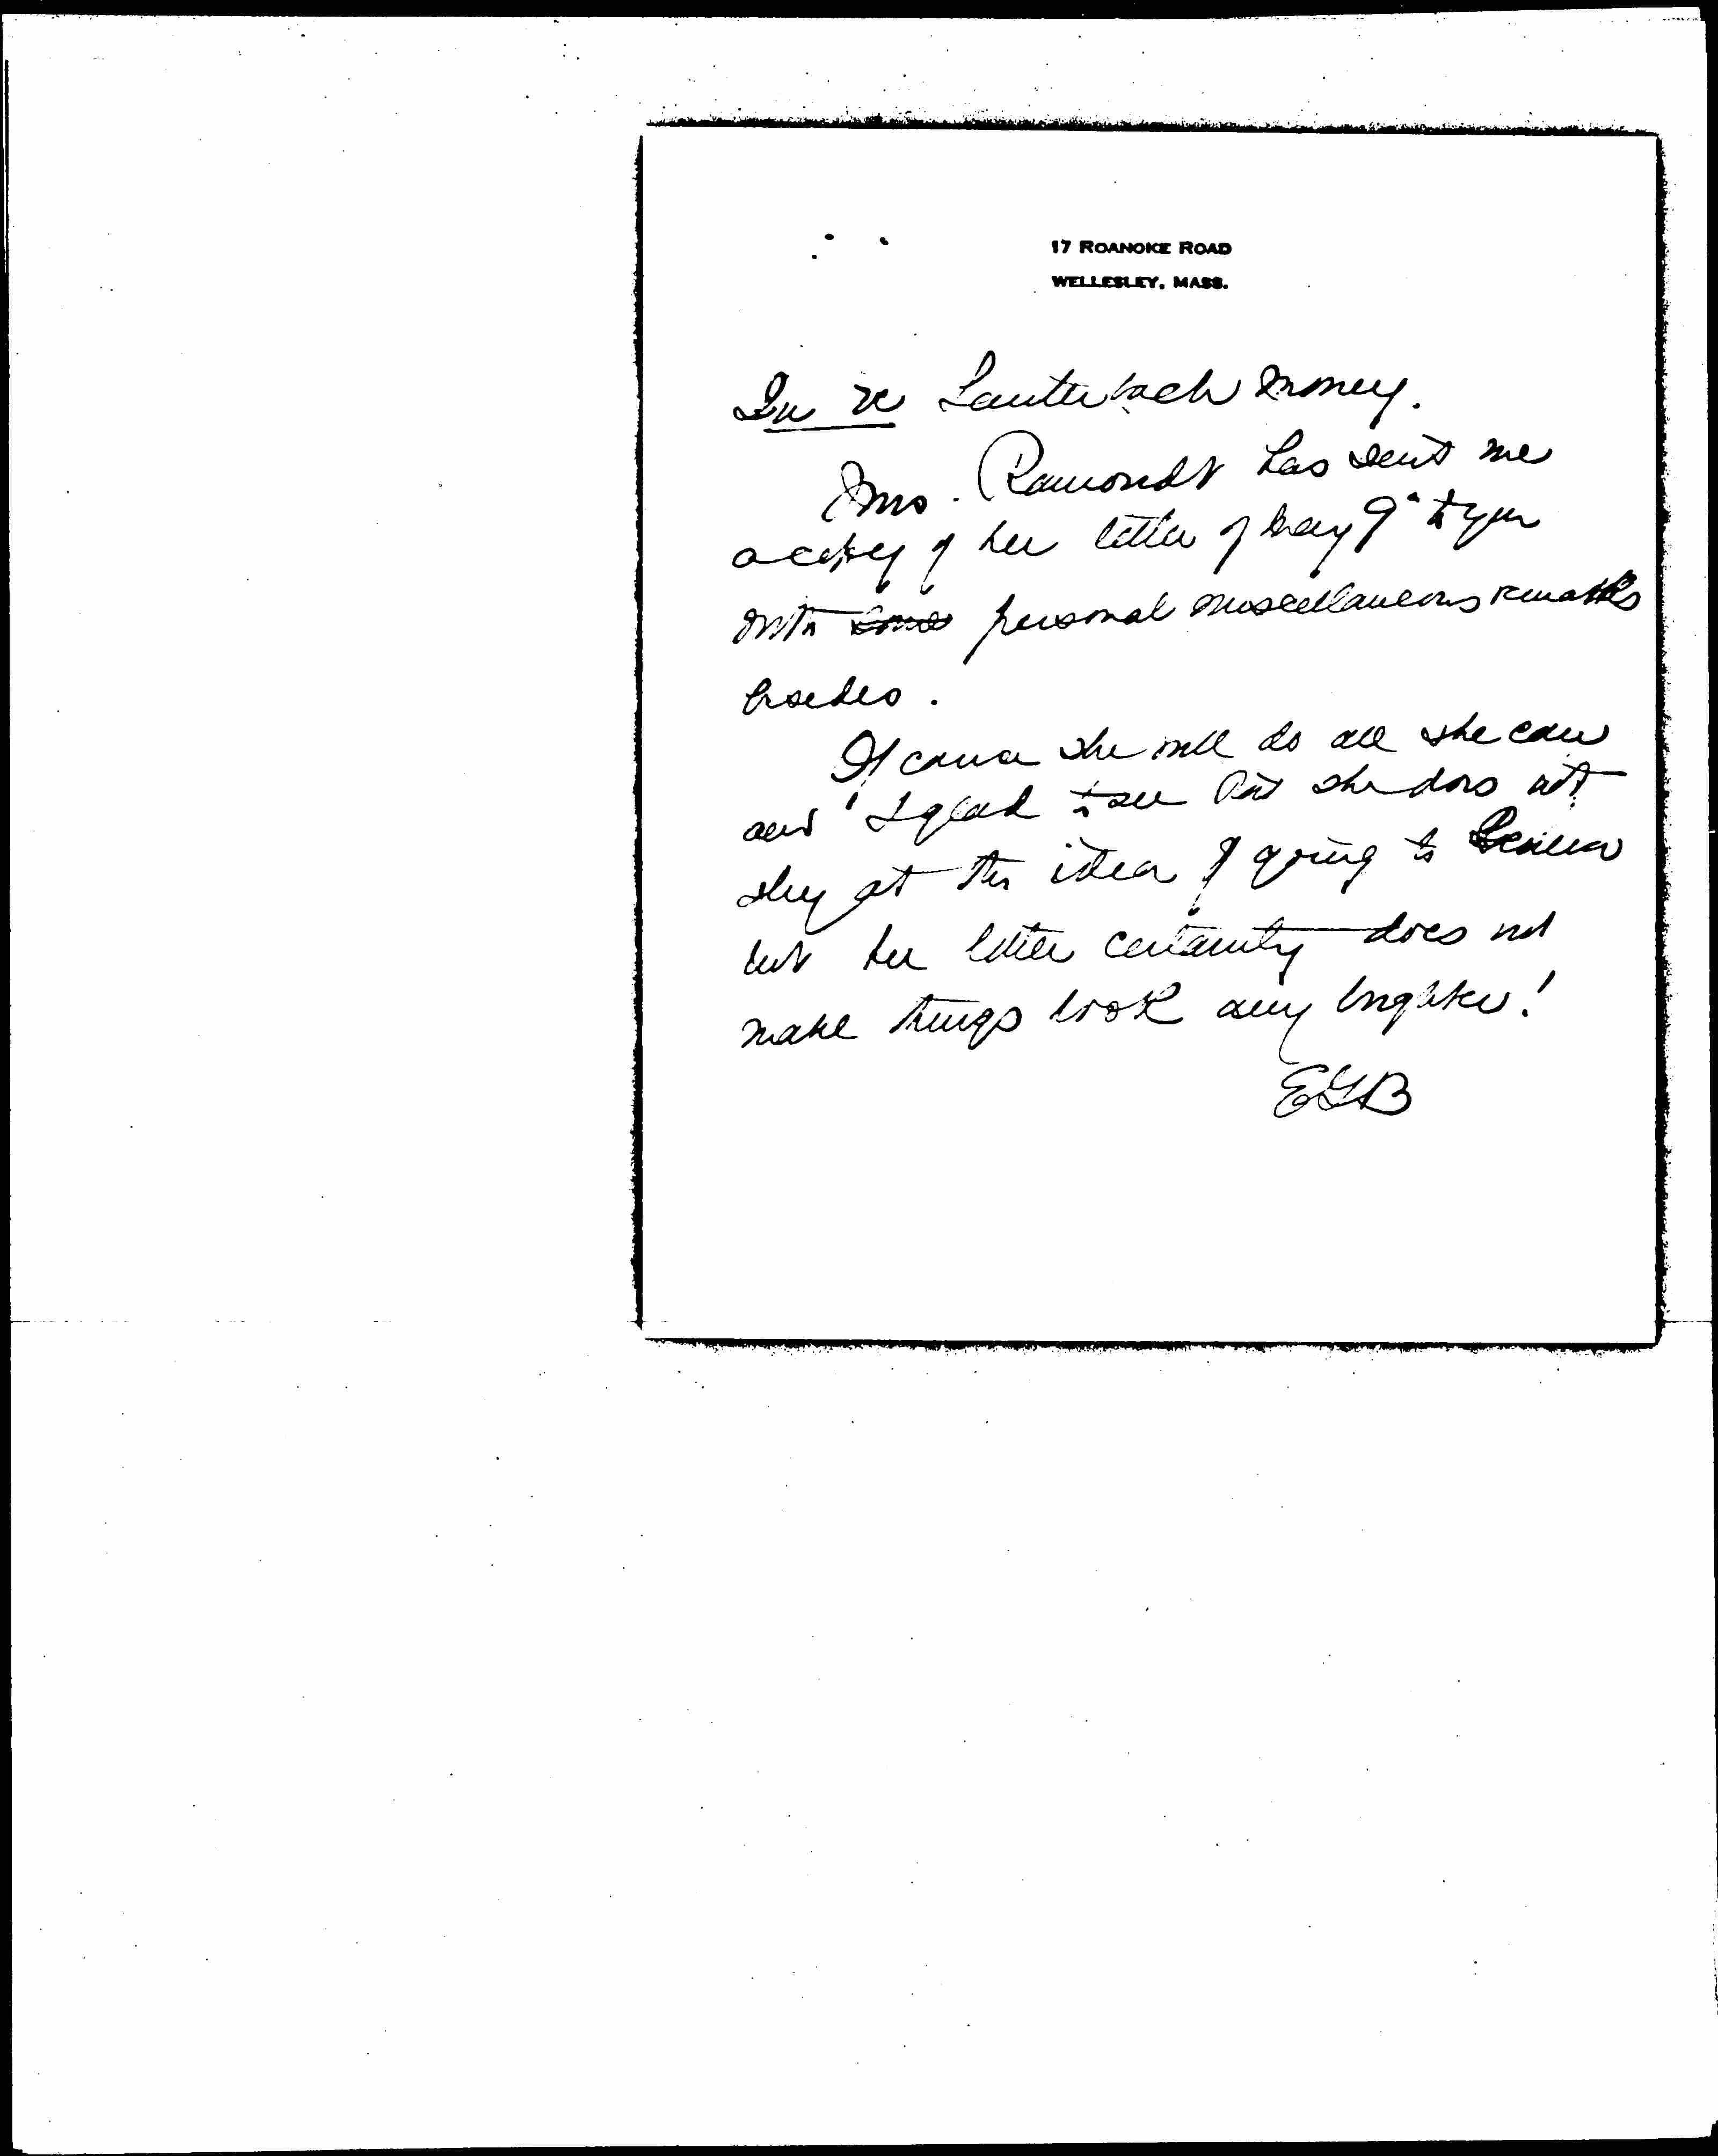 17 ROANOKE ROAD
WELLESLEY, MASS.
In re Lauterbach money.
Mrs. Ramondt has sent me
a copy of her letter of May 9" to you
with some personal miscellaneous remarks
besides.
Of course she will do all she can
and I glad to see that she does not
shy at the idea of going to Geneva
but her letter certainly does not
make things look any brighter!
EGB